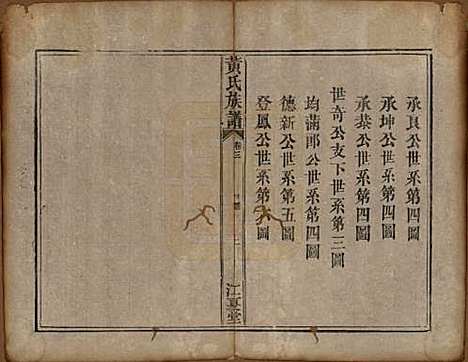 承良公世系第四圖
承坤公世系第四圖
承恭公世系第四圖
世奇公支下世系第三圖
均滿郎公世系第四圖
德新公世系第五圖
登鳳公世系第六圖
黃氏族譜
卷三
江夏堂